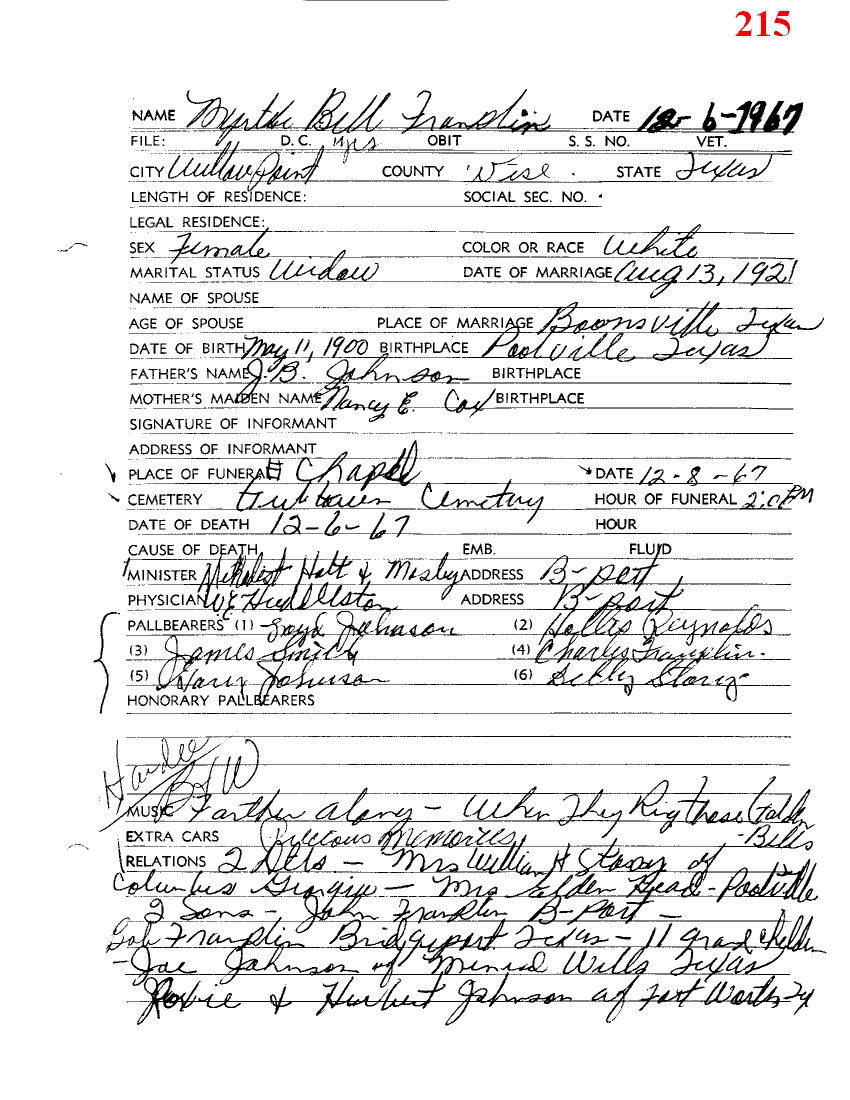 215
NAME Myrtle Bell Franklin DATE 12-6-1967
FILE: D.C. Mrs OBIT S. S. NO. VET.
CITY Willow Point COUNTY Wise. STATE Texas
LENGTH OF RESIDENCE: SOCIAL SEC. NO.
LEGAL RESIDENCE:
SEX Female COLOR OR RACE White
MARITAL STATUS Widow DATE OF MARRIAGE Aug 13, 1921
NAME OF SPOUSE
AGE OF SPOUSE PLACE OF MARRIAGE Boonsville Texas
DATE OF BIRTH May 11, 1900 BIRTHPLACE Poolville Texas
FATHER'S NAME J. B. Johnson BIRTHPLACE
MOTHER'S MAIDEN NAME Nancy E. Cox BIRTHPLACE
SIGNATURE OF INFORMANT
ADDRESS OF INFORMANT
PLACE OF FUNERAL Chapel DATE 12-8-67
CEMETERY Cemetery HOUR OF FUNERAL 2:00 PM
DATE OF DEATH 12-6-67 HOUR
CAUSE OF DEATH EMB. FLUID
MINISTER Methodist Holt & Mosley ADDRESS B-port
PHYSICIAN W E Huddleston ADDRESS B-port
PALLBEARERS (1) Johnson (2) Hollis Reynolds
(3) James Smith (4) Charles Franklin.
(5) Harry Johnson (6) Billy Story
HONORARY PALLBEARERS
B&W
MUSIC Farther along - When They Ring those Golden
EXTRA CARS Precious Memories - Bells
RELATIONS 2 Dtrs - Mrs William H Story of
Columbus Georgia - Mrs Elden Head - Poolville
2 Sons - John Franklin B-Port -
Bob Franklin Bridgeport Texas - 11 grand children
- Joe Johnson of Mineral Wells Texas
& Hurbert Johnson of Fort Worth Tx